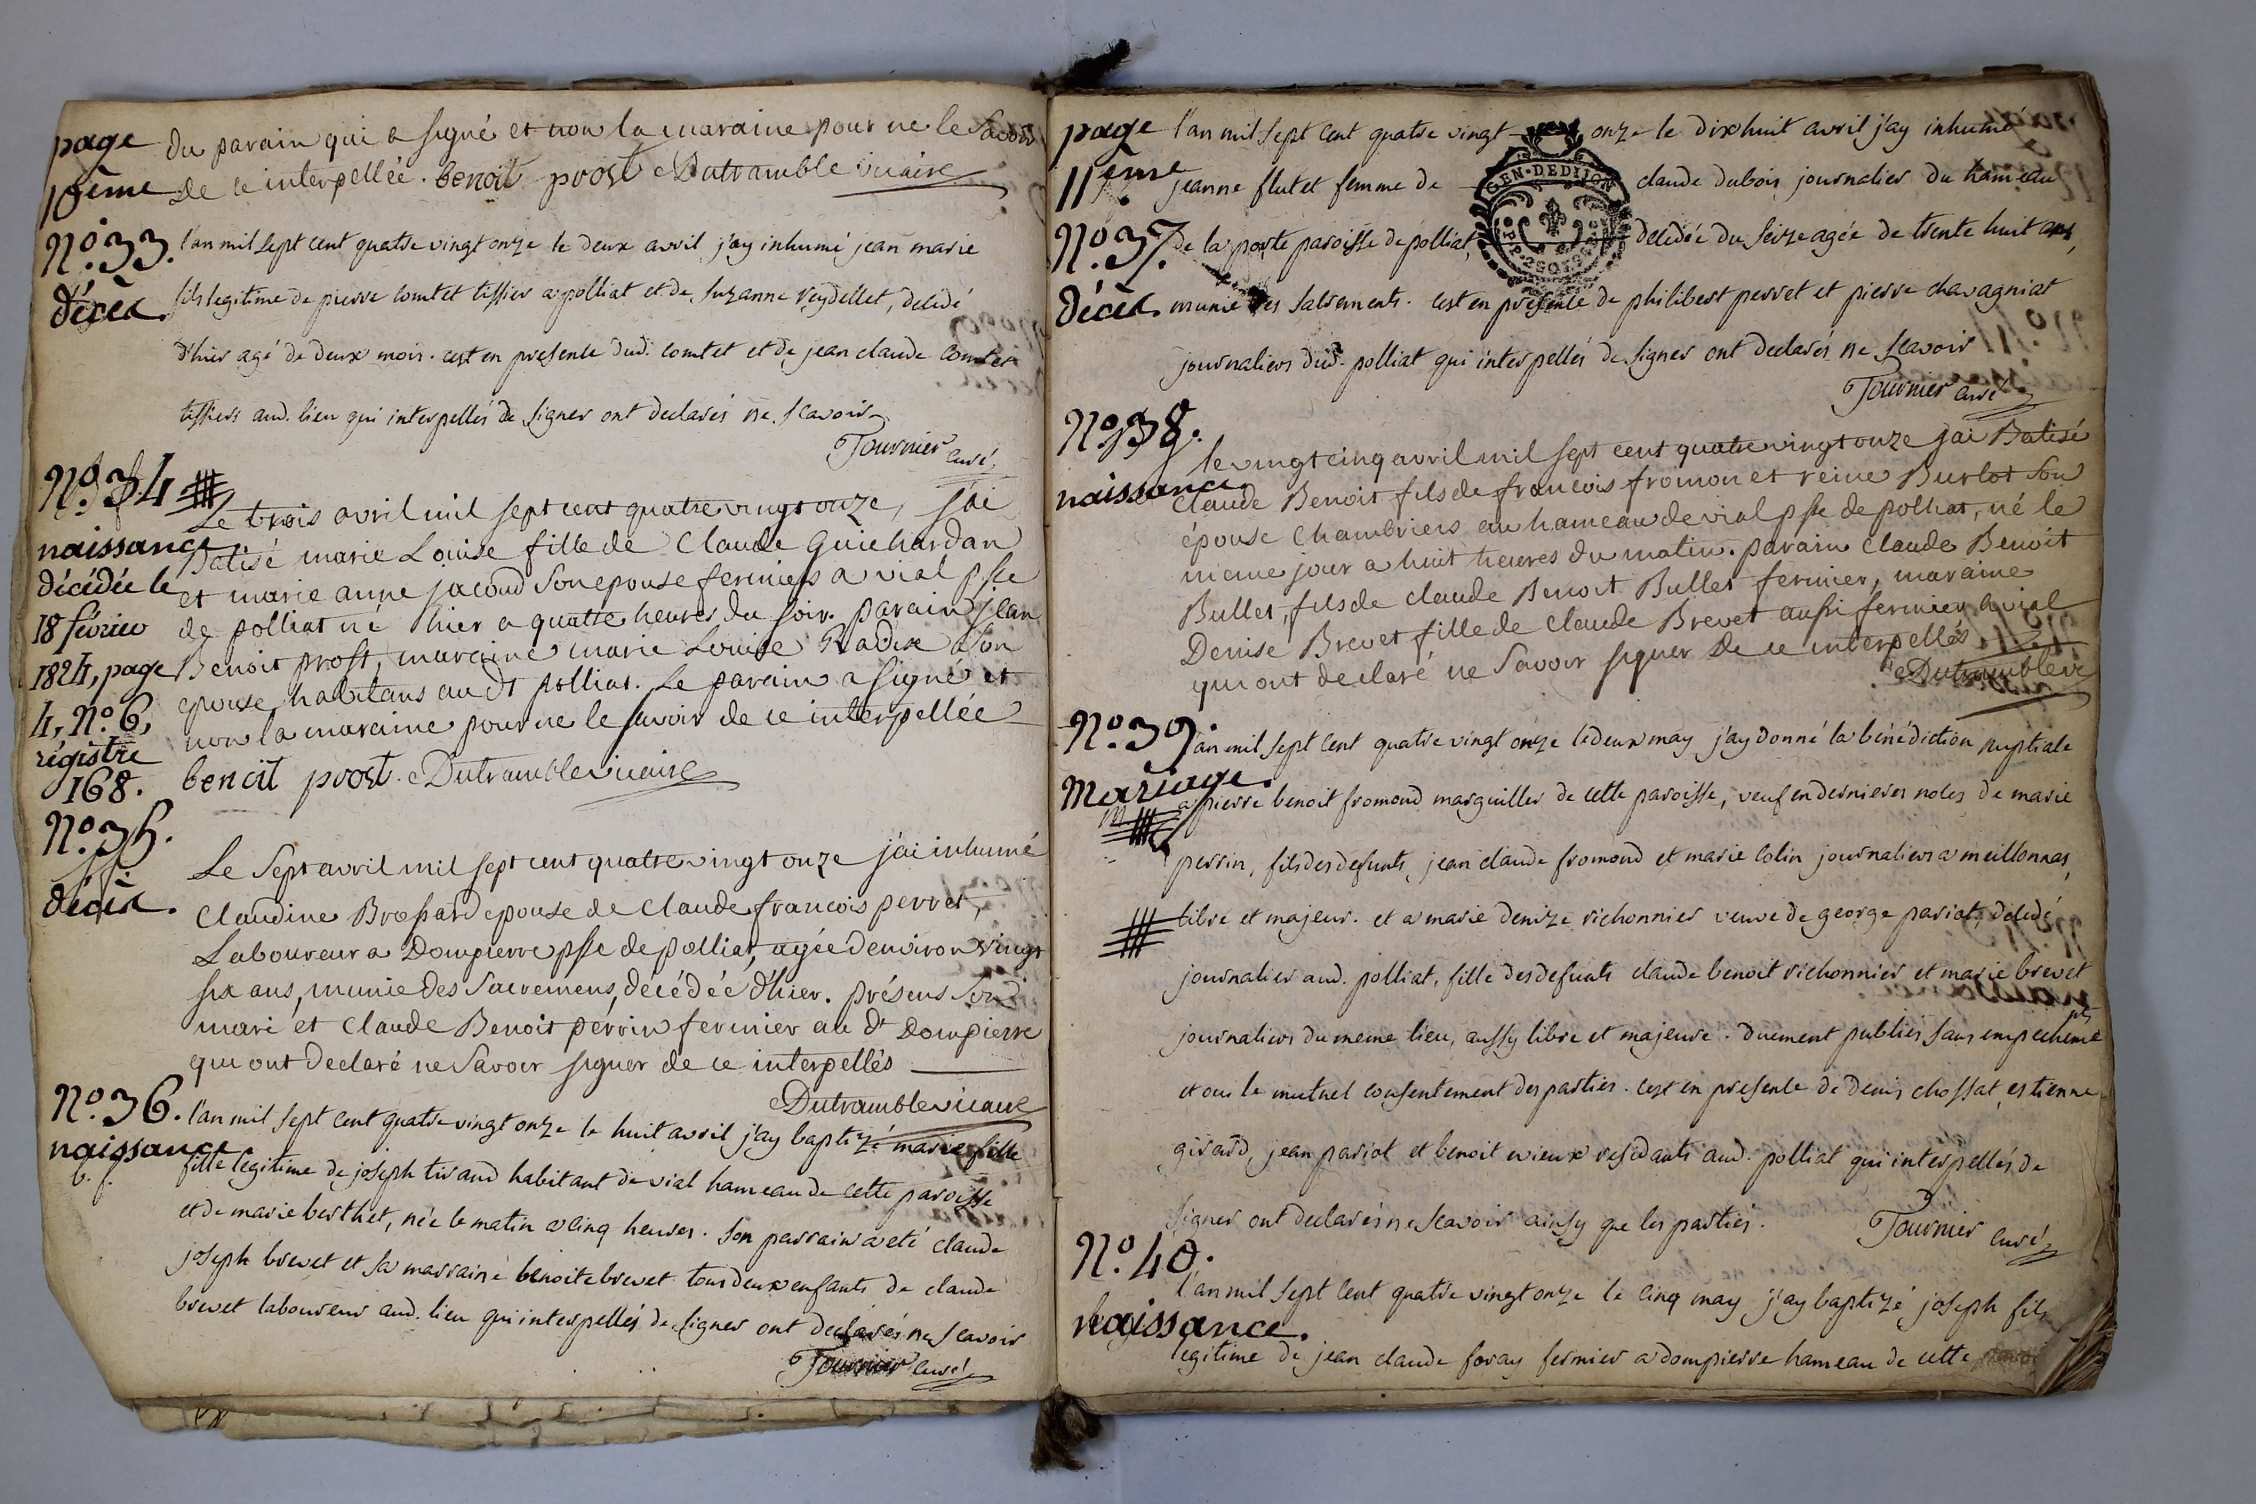 page
10ème
du parain qui a signé et non la maraine pour ne le savoir
de ce interpellée. benoit prost Dutramble vicaire
N.º 33.
décès.
l'an mil sept cent quatre vingt onze le deux avril j'ay inhumé jean marie
fils legitime de pierre comtet tissier a polliat et de suzanne reydellet, decedé
d'hier agé de deux mois. cest en presence dud. comtet et de jean claude comtet
tissiers aud. lieu qui interpellés de signer ont declarés ne scavoir
Tournier curé
N.º 34
naissance
décédée le
18 février
1824, page
4, N.º 6,
régistre
168.
Le trois avril mil sept cent quatre vingt onze, j'ai
Batisé marie Louise fille de Claude Guichardan
et marie anne jacoud son epouse fermiers a vial psse
de polliat né hier a quatre heures du soir. parain jean
Benoit prost, maraine marie Louise Radix son
epouse habitans au dt polliat. Le parain a signé et
non la maraine pour ne le savoir de ce interpellée
benoit prost. Dutramble vicaire
N.º 35.
décès.
Le Sept avril mil sept cent quatre vingt onze j'ai inhumé
Claudine Brossard epouse de Claude francois perret,
Laboureur a Dompierre psse de polliat, agée d'environ vingt
six ans, munie des Sacremens, décédée d'hier. présens Son
mari et Claude Benoit perrin fermier au dt Dompierre
qui ont declaré ne Savoir signer de ce interpellés
Dutramble vicaire
N.º 36.
naissance.
b. f.
l'an mil sept cent quatre vingt onze le huit avril j'ay baptizé marie fille
fille legitime de joseph tirand habitant de vial hameau de cette paroisse
et de marie berthet, née le matin a cinq heures. son parrain a eté claude
joseph brevet et sa marraine benoite brevet tous deux enfants de claude
brevet laboureur aud. lieu qui interpellés de signer ont declarés ne scavoir
Tournier curé
page
11ème
N.º 37.
décès.
l'an mil sept cent quatre vingt onze le dixhuit avril j'ay inhumé
jeanne flutet femme de claude dubois journalier du hameau
GEN. DE DIJON
de la poste paroisse de polliat, decedée du seize agée de trente huit ans,
munie des sacrements. cest en presence de philibert perret et pierre chavagniat
journaliers dud. polliat qui interpellés de signer ont declarés ne scavoir
Tournier curé
N.º 38.
naissance.
le vingt cinq avril mil sept cent quatre vingt onze j'ai Batisé
Claude Benoit fils de francois fromon et reine Burlot son
épouse Chambriers au hameau de vial psse de polliat, né le
meme jour a huit heures du matin. parain Claude Benoit
Bullet, fils de claude Benoit Bullet fermier, maraine
Denise Brevet fille de Claude Brevet aussi fermier a vial
qui ont declaré ne Savoir signer de ce interpellés
Dutramble ve
N.º 39.
Mariage.
l'an mil sept cent quatre vingt onze le deux may j'ay donné la bénédiction nuptiale
a pierre benoit fromond marguiller de cette paroisse, veuf en dernieres noces de marie
perrin, fils des defunts, jean claude fromond et marie colin journaliers a meillonnas,
libre et majeur. et a marie denize richonnier veuve de george pariot, decedé
journalier aud. polliat, fille des defunts claude benoit richonnier et marie brevet
journaliers du meme lieu, aussy libre et majeure. duement publiés sans empechemēts
et oui le mutuel consentement des parties. cest en presence de denis chossat, estienne
girard, jean pariot et benoit vieux residants aud. polliat qui interpellés de
signer ont declarés ne scavoir ainsy que les parties.
Tournier curé
N.º 40.
naissance.
l'an mil sept cent quatre vingt onze le cinq may j'ay baptizé joseph fils
legitime de jean claude foray fermier a dompierre hameau de cette